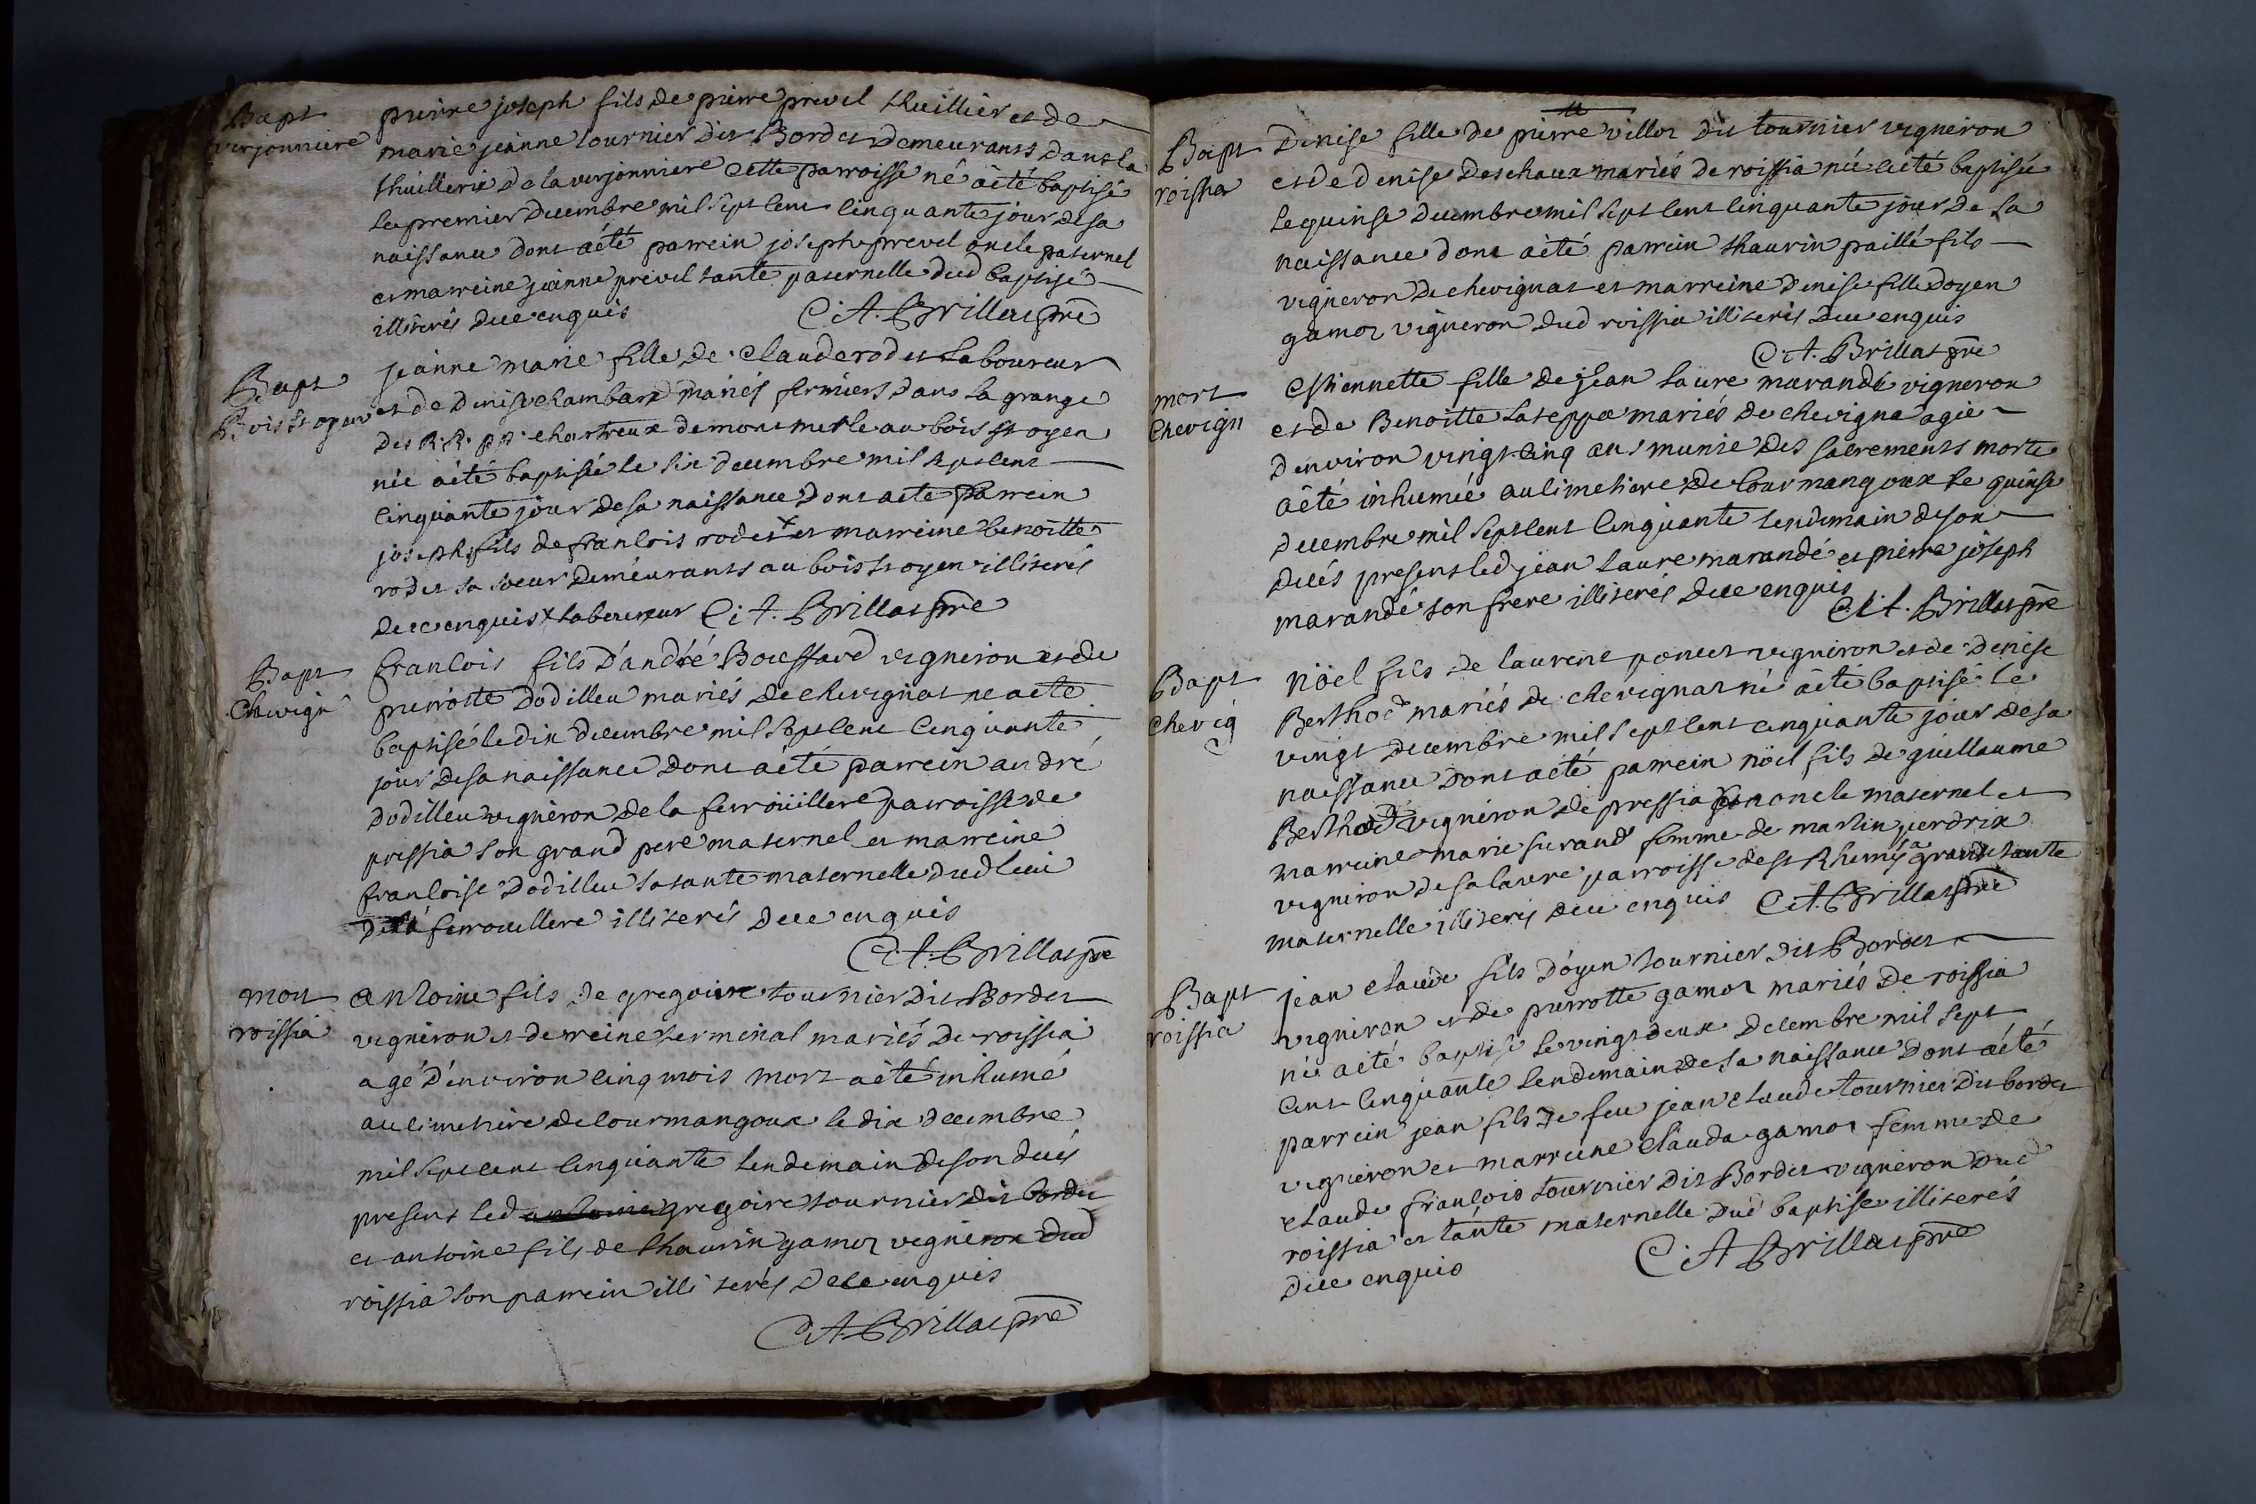 Bapt
verjonniere
pierre joseph fils de pierre prevel thuillier et de
marie jeanne tournier dit Bordet demeurants dans la
thuillerie de la verjonniere cette parroisse né aété baptisé
le premier decembre mil sept cent cinquante jour de sa
naissance dont aété parrein joseph prevel oncle paternel
et marreine jeanne prevel tante paternelle dud baptisé
illiterés de ce enquis
C. A. Brillat pre
Bapt
Bois st oyen
jeanne marie fille de claude rodet laboureur
et de denise chambard mariés fermiers dans la grange
des R. R. pp. chartreux de mont merle au bois st oyen
née aété baptisée le six decembre mil sept cent
cinquante jour de sa naissance dont aeté parrein
joseph fils de francois rodet x et marreine benoitte
rodet sa soeur demeurants au bois st oyen illiterés
de ce enquis x laboureur C. A. Brillat pre
Bapt
Chevign
francois fils d'andré Bouffard vigneron et de
pierrotte dodilleu mariés de chevignat né aété
baptisé le dix decembre mil sept cent cinquante
jour de sa naissance dont aété parrein andré
dodilleu vigneron de la ferrouillere parroisse de
pressia son grand pere maternel et marreine
francoise dodilleu sa tante maternelle dud lieu
de la ferrouillere illiterés de ce enquis
C. A. Brillat pre
mort
roissia
antoine fils de gregoire tournier dit Bordet
vigneron et de reine terminal mariés de roissia
agé d'environ cinq mois mort aété inhumé
au cimetiere de courmangoux le dix decembre
mil sept cent cinquante lendemain de son decés
present led antoine gregoire tournier dit bordet
et antoine fils de thaurin gamoz vigneron dud
roissia son parrein illiterés de ce enquis
C. A. Brillat pre
Bapt
roissia
Denise fille de pierre villoz dit tournier vigneron
et de denise deschaux mariés de roissia née aété baptisée
le quinse decembre mil sept cent cinquante jour de sa
naissance dont aété parrein thaurin paillé fils
vigneron de chevignat et marreine denise fille doyen
gamoz vigneron dud roissia illiterés de ce enquis
C. A. Brillat pre
mort
Chevign
Estiennette fille de jean laure marandé vigneron
et de Benoitte lateppe mariés de chevigna agée
d'environ vingt cinq ans munie des sacrements morte
aété inhumée au cimetiere de courmangoux le quinse
decembre mil sept cent cinquante lendemain de son
decés presents led jean laure marandé et pierre joseph
marandé son frere illiterés de ce enquis
C. A. Brillat pre
Bapt
chevig
Nöel fils de laurent poncet vigneron et de denise
Berthod mariés de chevignat né aété baptisé le
vingt decembre mil sept cent cinquante jour de sa
naissance dont aété parrein nöel fils de guillaume
Berthod vigneron de pressia son oncle maternel et
marreine marie ferand femme de martin perdrix
vigneron de salavre parroisse de st Rhemy sa grande tante
maternelle illiterés de ce enquis C. A. Brillat pre
Bapt
roissia
jean claude fils d'oyen tournier dit Bordet
vigneron et de pierrotte gamoz mariés de roissia
né aété baptisé le vingt deux decembre mil sept
cent cinquante lendemain de sa naissance dont aété
parrein jean fils de feu jean claude tournier dit bordet
vigneron et marreine clauda gamoz femme de
claude francois tournier dit Bordet vigneron dud
roissia et tante maternelle dud baptisé illiterés
de ce enquis
C. A Brillat pre